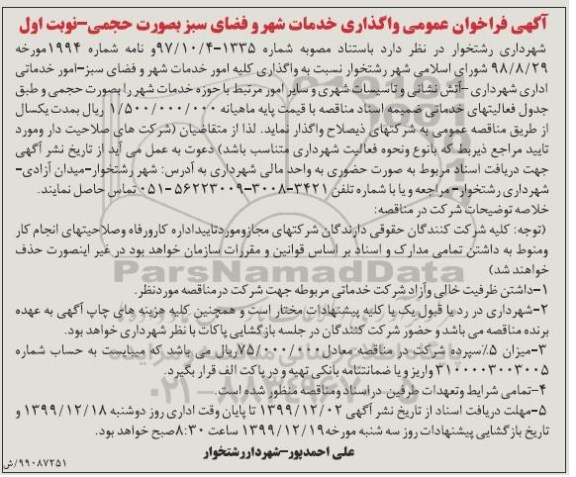 آگهی فراخوان عمومی واگذاری خدمات شهر و فضای سبز بصورت حجمی-نوبت اول
شهرداری رشتخوار در نظر دارد باستناد مصوبه شماره ۱۳۳۵-۹۷/۱۰/۴و نامه شماره ۱۹۹۴مورخه
۹۸/۸/۲۹ شورای اسلامی شهر رشتخوار نسبت به واگذاری کلیه امور خدمات شهر و فضای سبز-امور خدماتی
اداری شهرداری -آتش نشانی و تاسیسات شهری و سایر امور مرتبط با حوزه خدمات شهر را بصورت حجمی و طبق
جدول فعالیتهای خدماتی ضمیمه اسناد مناقصه با قیمت پایه ماهیانه ۱/۵۰۰/۰۰۰/۰۰۰ ریال بمدت یکسال
از طریق مناقصه عمومی به شرکتهای ذیصلاح واگذار نماید. لذا از متقاضیان (شرکت های صلاحیت دار ومورد
تایید مراجع ذیربط که بانوع ونحوه فعالیت شهرداری متناسب باشد) دعوت به عمل می آید از تاریخ نشر آگهی
جهت دریافت اسناد مربوط به صورت حضوری به واحد مالی شهرداری به آدرس: شهر رشتخوار-میدان آزادی-
شهرداری رشتخوار- مراجعه و یا با شماره تلفن ۳۴۲۱-۳۰۰۸-۵۶۲۲۳۰۰۹-۰۵۱ تماس حاصل نمایند.
خلاصه توضیحات شرکت در مناقصه:
(توجه: کلیه شرکت کنندگان حقوقی دارندگان شرکتهای مجازوموردتاییداداره کارورفاه وصلاحیتهای انجام کار
ومنوط به داشتن تمامی مدارک و اسناد بر اساس قوانین و مقررات سازمان خواهد بود در غیر اینصورت حذف
خواهند شد)
۱-داشتن ظرفیت خالی وآزاد شرکت خدماتی مربوطه جهت شرکت درمناقصه موردنظر.
۲-شهرداری در رد یا قبول یک یا کلیه پیشنهادات مختار است و همچنین کلیه هزینه های چاپ آگهی به عهده
برنده مناقصه می باشد و حضور شرکت کنندگان در جلسه بازگشایی پاکات با نظر شهرداری خواهد بود.
۳-میزان ۵٪سپرده شرکت در مناقصه معادل۷۵/۰۰۰/۰۰۰ریال می باشد که میبایست به حساب شماره
۳۱۰۰۰۰۳۰۰۳۰۰۵ واریز و یا ضمانتنامه بانکی تهیه و در پاکت الف قرار بگیرد.
۴-تمامی شرایط وتعهدات طرفین-دراسناد ومناقصه منظور شده است.
۵-مهلت دریافت اسناد از تاریخ نشر آگهی ۱۳۹۹/۱۲/۰۲ تا پایان وقت اداری روز دوشنبه ۱۳۹۹/۱۲/۱۸ و
تاریخ بازگشایی پیشنهادات روز سه شنبه مورخه۱۳۹۹/۱۲/۱۹ ساعت ۸:۳۰صبح خواهد بود.
علی احمدپور-شهرداررشتخوار
۹۹۰۸۷۲۵۱/ش
ParsNamadData